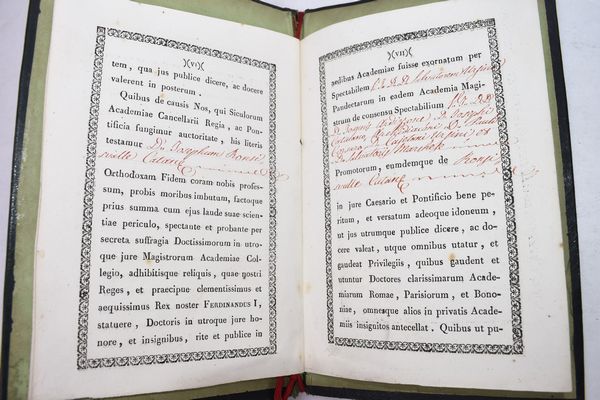 )(VI)(
tem, qua jus publice dicere, ac docere
valerent in posterum.
Quibus de causis Nos, qui Siculorum
Academiae Cancellarii Regia, ac Pon-
tificia fungimur auctoritate, his literis
testamur D. Josephum Ronsi
Catane
Orthodoxam Fidem coram nobis profes-
sum, probis moribus imbutum, factoque
prius summa cum ejus laude suae scien-
tiae periculo, spectante et probante per
secreta suffragia Doctissimorum in utro-
que jure Magistrorum Academiae Col-
legio, adhibitisque reliquis, quae nostri
Reges, et praecipue clementissimus et
aequissimus Rex noster FERDINANDUS I,
statuere, Doctoris in utroque jure ho-
nore, et insignibus, rite et publice in
)(VII)(
aedibus Academiae fuisse exornatum per
Spectabilem
Pandectarum in eadem Academia Magi-
strum de consensu Spectabilium
D. Josephi
et
D. Salvatoris
Promotorum, eumdemque de Ronsi
Catane
in jure Caesario et Pontificio bene pe-
ritum, et versatum adeoque idoneum,
ut jus utrumque publice dicere, ac do-
cere valeat, utque omnibus utatur, et
gaudeat Privilegiis, quibus gaudent et
utuntur Doctores clarissimarum Acade-
miarum Romae, Parisiorum, et Bono-
niae, omnesque alios in privatis Acade-
miis insignitos antecellat. Quibus ut pu-